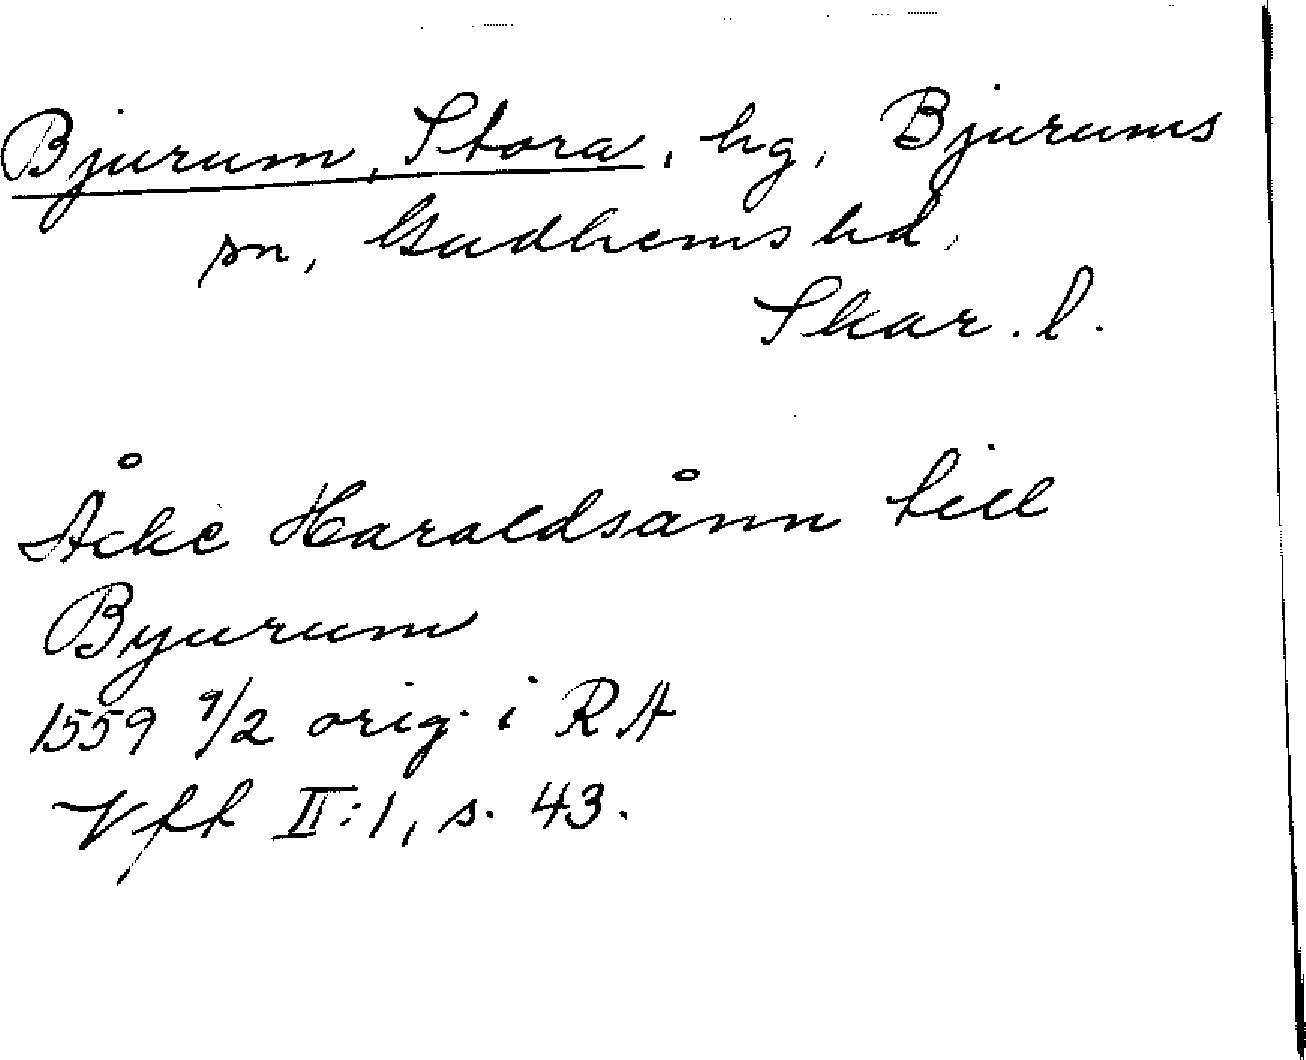 Bjurum, Stora, hg, Bjurums
sn, Gudhems hd,
Skar. l.
Åcke Haraldsånn till
Byurum
1559 9/2 orig. i RA
Vfk II:1, s. 43.